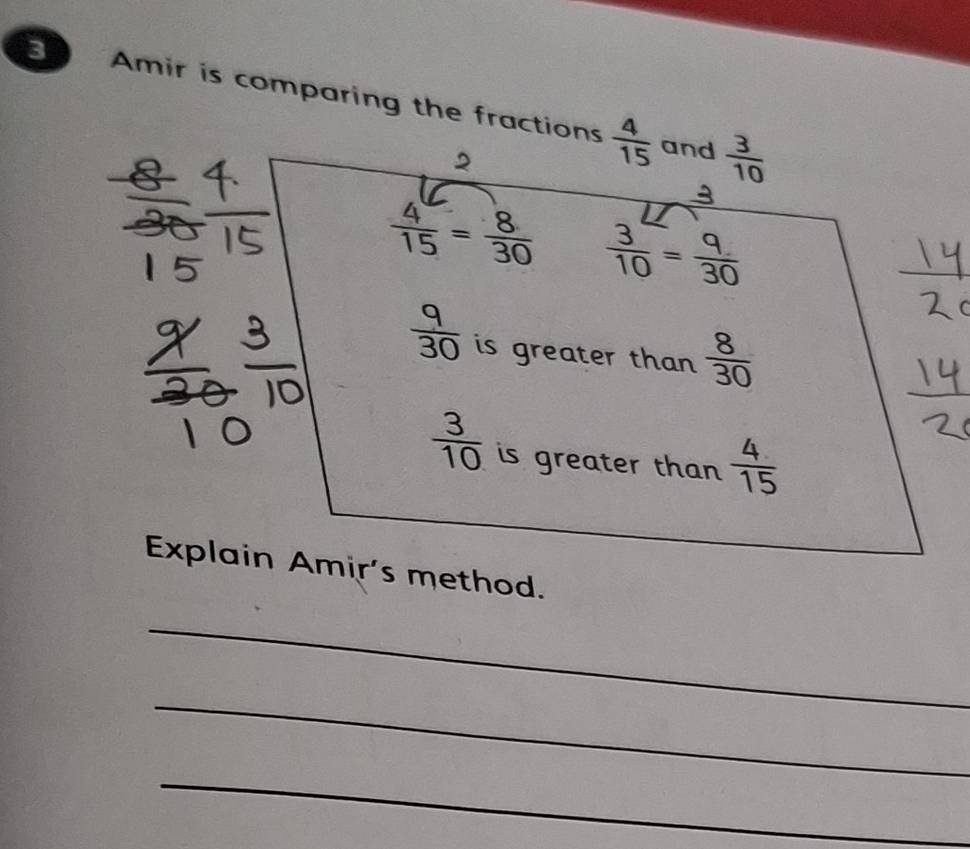 3 Amir is comparing the fractions 4/15 and 3/10
2 3
8/30 15 4/15
4/15 = 8/30 3/10 = 9/30
14/20
9/30 10 3/10
9/30 is greater than 8/30
14/2
3/10 is greater than 4/15
Explain Amir's method.